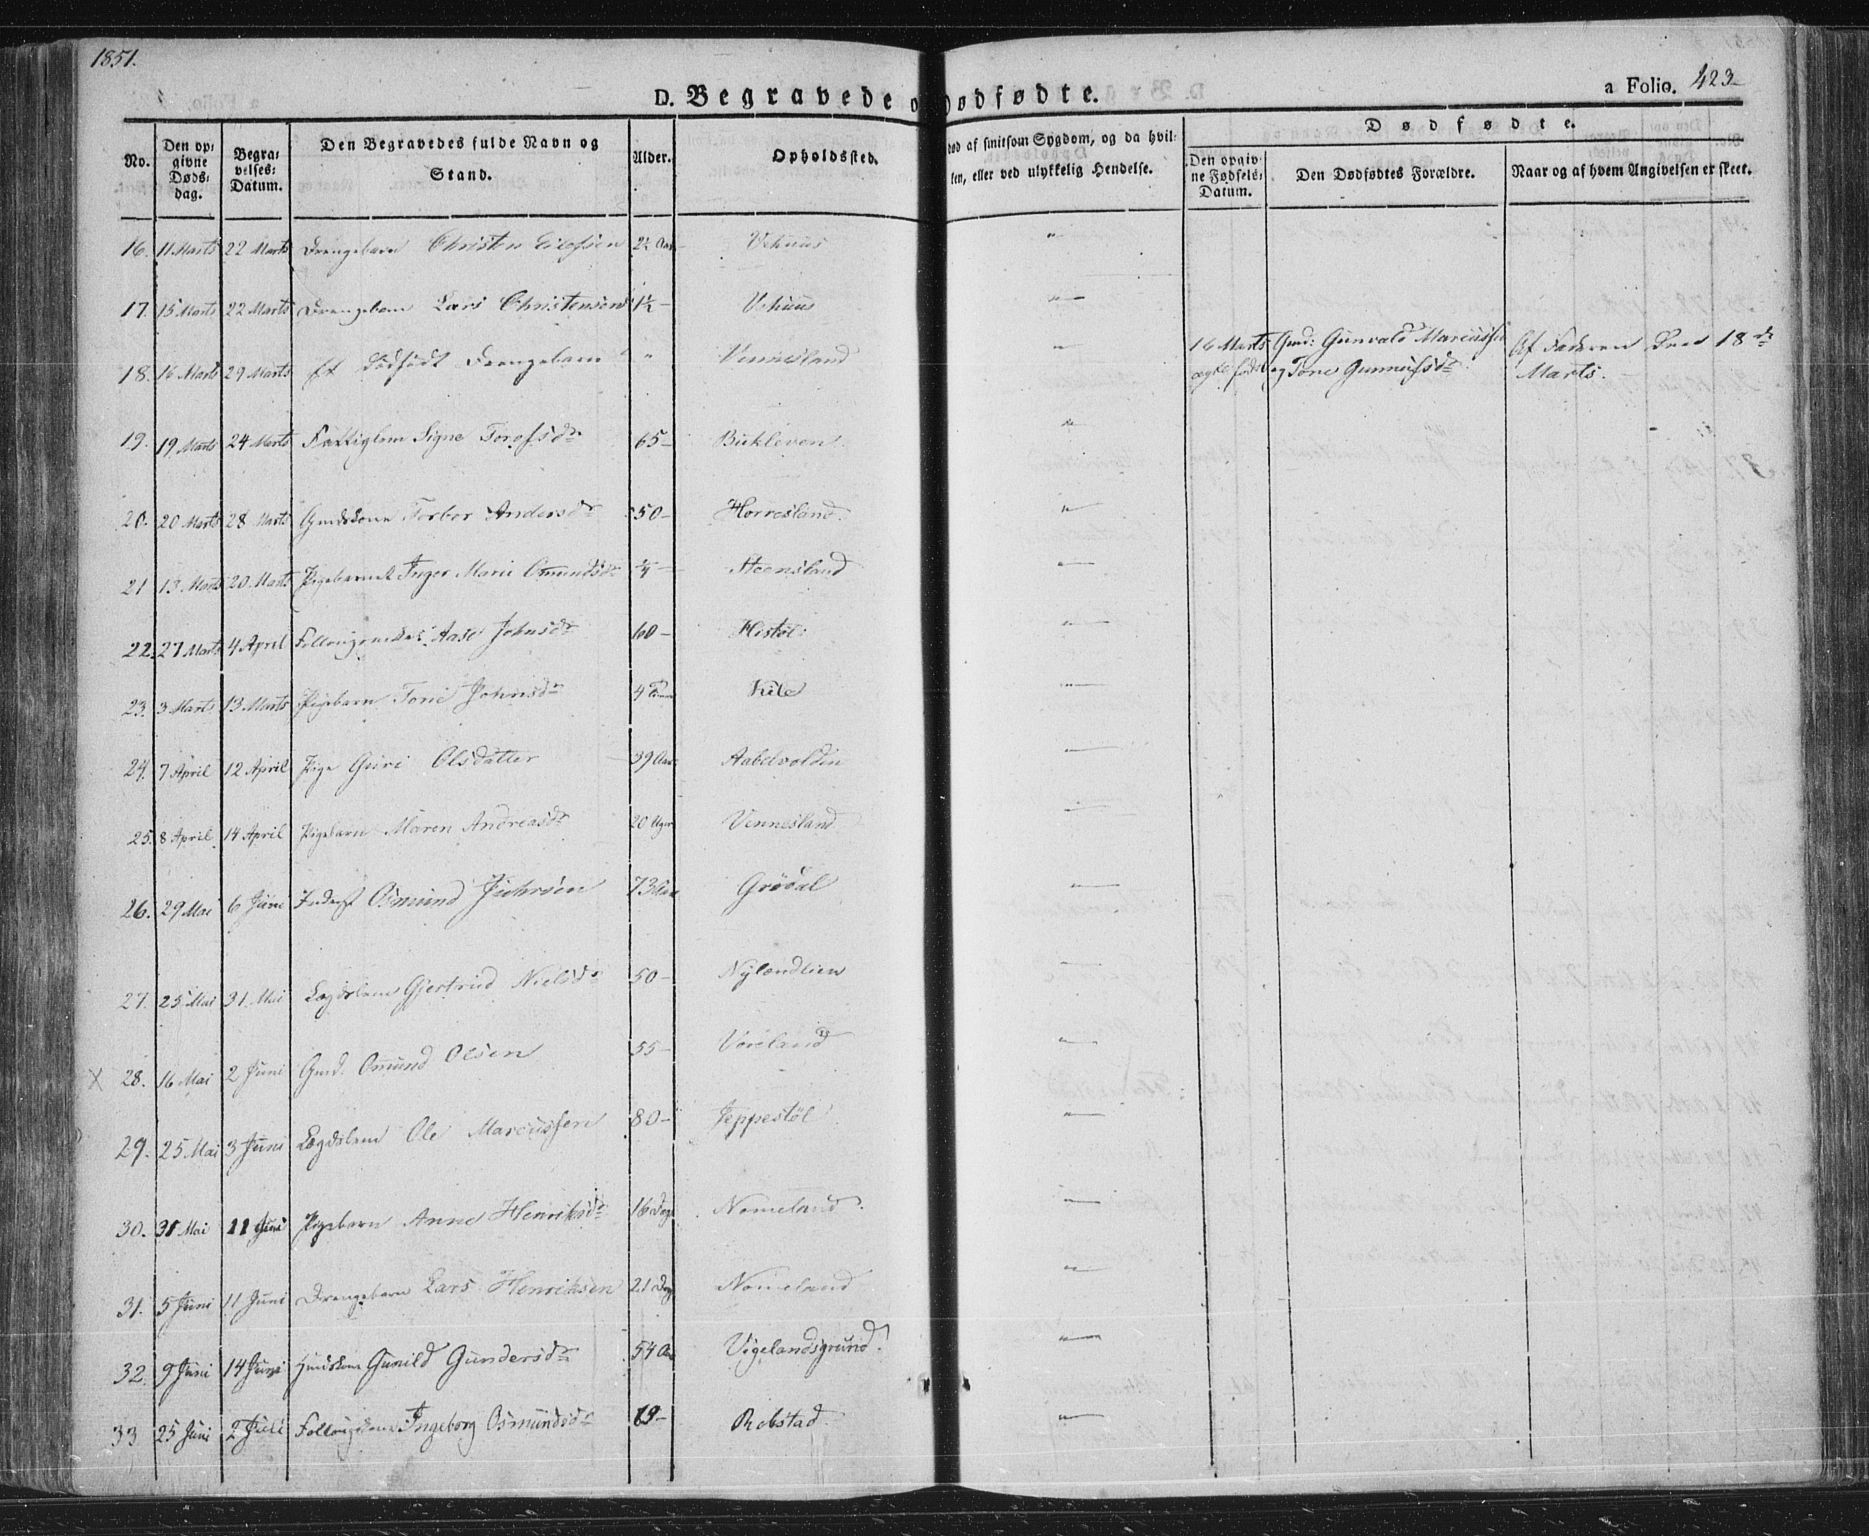 1851.
a Folio. 423
D. Begravede o Dødfødte.
No.
Den op-
givne
Døds-
dag.
Begra-
velses-
Datum.
Den Begravedes fulde Navn og
Stand.
Alder.
Opholdssted.
død af smitsom Sygdom, og da hvil-
ken, eller ved ulykkelig Hendelse.
Dødfødte.
Den opgiv-
ne Fødsels-
Datum.
Den Dødfødtes Forældre.
Naar og af hvem Angivelsen er skeet.
16. 11 Marts 22 Marts Drengebarn Christen 2½ Aar Vehuus "
17. 15 Marts 22 Marts Drengebarn Lars Christensen 1½ – Vehuus "
18. 16 Marts 29 Marts Et dødfødt Drengebarn " Vennesland " 16 Marts Gmd: Gunvald Marcussen Af Faderen Den 18de
ægte født og Tone Gunnufsdr Marts.
19. 19 Marts 24 Marts Fattiglem Signe 65 – Bukleven "
20. 20 Marts 28 Marts Gmdskone Torbor Andersdr 50 – Horresland "
21 13 Marts 20 Marts Pigebarnet Inger Marie Omundsdr ¼ – Steensland "
22. 27 Marts 4 April Aase Johnsdr 60 – Histøl "
23. 3 Marts 13 Marts Pigebarn Tone Johnsdr 4 Kile "
24. 7 April 12 April Pige Guri Olsdatter 39 Aar Aabelvolden "
25. 8 April 14 April Pigebarn Maren Andreasdr 20 Uger Vennesland "
26. 29 Mai 6 Juni Inderst Osmund 73 Aar Grødal "
27. 25 Mai 31 Mai Lægdslem Gjertrud Nielsdr 50 – Nylendlien "
X 28. 16 Mai 2 Juni Gmd. Omund Olsen 55 – Voreland "
29. 25 Mai 3 Juni Lægdslem Ole Marcussen 80 – Jeppestøl "
30. 31 Mai 11 Juni Pigebarn Anne Henriksdr 16 Dage Nomeland "
31. 5 Juni 11 Juni Drengebarn Lars Henriksen 21 Dag Nomeland "
32. 9 Juni 14 Juni Gunild Gundersdr 54 Aar Vigelandsgrund "
33 25 Juni 2 Juli Ingeborg Osmundsdr – Robstad "